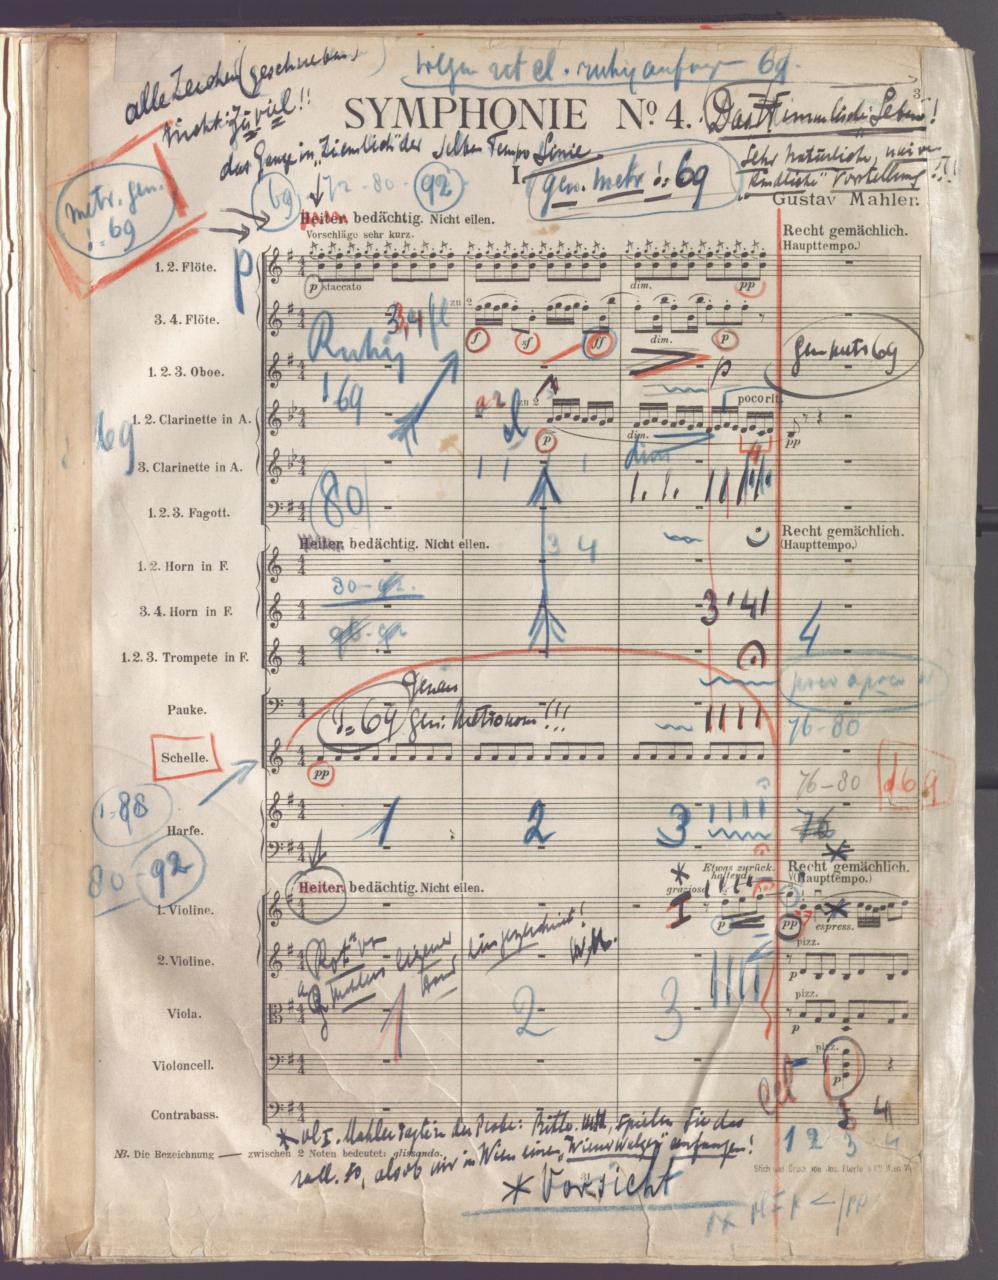 alle Zeichen geschrieben
69.
3
zu viel!!
SYMPHONIE Nº 4.
Das Himmlische Leben!
das Ganze in "Ziemlich" der selben Tempo Linie
Sehr natürlich, naive
"kindliche" Vorstellung!!
I.
gen. metr. 69
metr. gen.
69
69 72-80-92
Gustav Mahler.
Heiter, bedächtig. Nicht eilen.
Vorschläge sehr kurz.
Recht gemächlich.
(Haupttempo.)
P
1. 2. Flöte.
p staccato
dim.
pp
3. 4. Flöte.
3,4 fl
zu 2
f
sf
ff
dim.
p
Ruhig
69
gen metr 69
1. 2. 3. Oboe.
1. 2. Clarinette in A.
a 2
zu 2
p
dim.
poco rit.
pp
69
3. Clarinette in A.
dim
80
1. 2. 3. Fagott.
Heiter, bedächtig. Nicht eilen.
3 4
Recht gemächlich.
(Haupttempo.)
1. 2. Horn in F.
80-92.
3. 4. Horn in F.
3 4
4
1. 2. 3. Trompete in F.
poco a poco
Pauke.
Genau
69 gen: Metronom!!!
76-80
Schelle.
pp
76-80
69
88
Harfe.
1 2 3
76
80-92
Heiter, bedächtig. Nicht eilen.
grazioso
Etwas zurück-
haltend.
Recht gemächlich.
(Haupttempo.)
1. Violine.
p
pp
espress.
2. Violine.
"Rot" von
Mahlers eigener Hand eingezeichnet!
pizz.
p
Viola.
1 2 3
pizz.
p
Violoncell.
pizz.
p
Contrabass.
Mahler sagte in der Probe: Bitte, spielen Sie das
NB. Die Bezeichnung — zwischen 2 Noten bedeutet: glissando.
rall. so, als ob wir in Wien einen "Wienerwalzer" anfangen!
1 2 3 4
Stich und Druck von Jos. Eberle & Co. Wien VII.
* Vorsicht